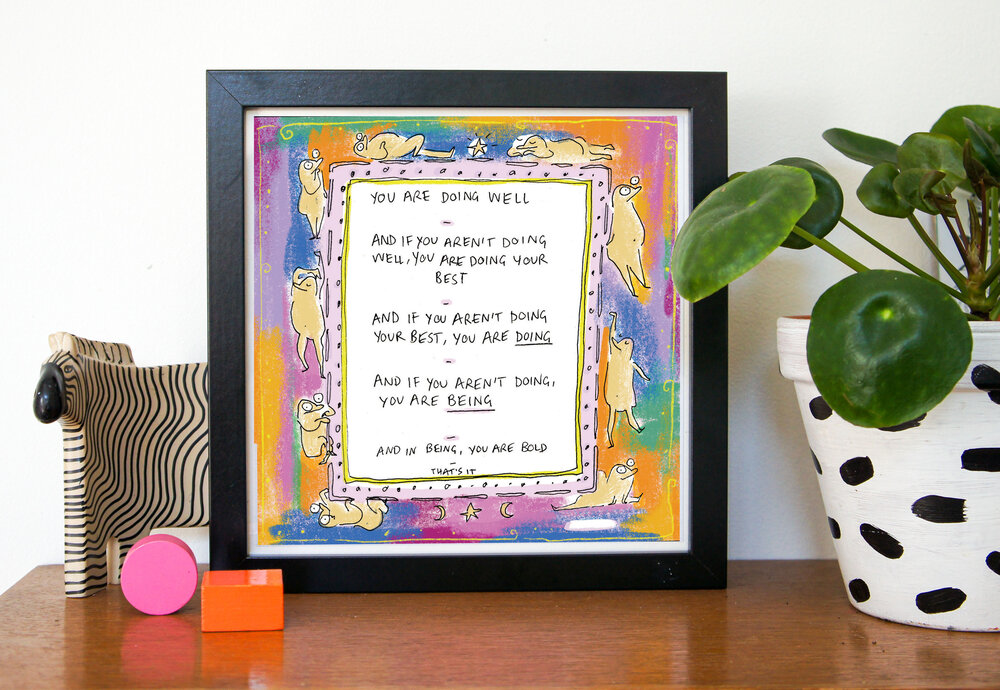 YOU ARE DOING WELL
AND IF YOU AREN'T DOING
WELL, YOU ARE DOING YOUR
BEST
AND IF YOU AREN'T DOING
YOUR BEST, YOU ARE DOING
AND IF YOU AREN'T DOING,
YOU ARE BEING
AND IN BEING, YOU ARE BOLD
THAT'S IT